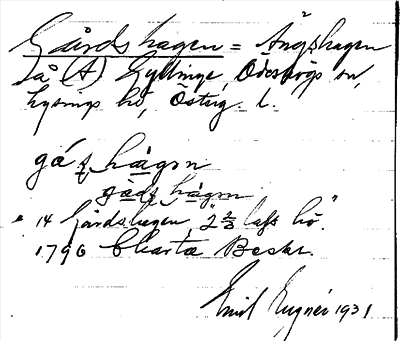 Gårdshagen = Ängshagen
på (A) Gyllinge, Ödeshögs sn,
Lysings hd, Östug. l.
gá ʂ hàgɘn
gàdʂ hàgɘn
14 Gårdshagen, "2 2/3 lass hö."
1796 Charta Beskr.
Emil Eugnér 1931